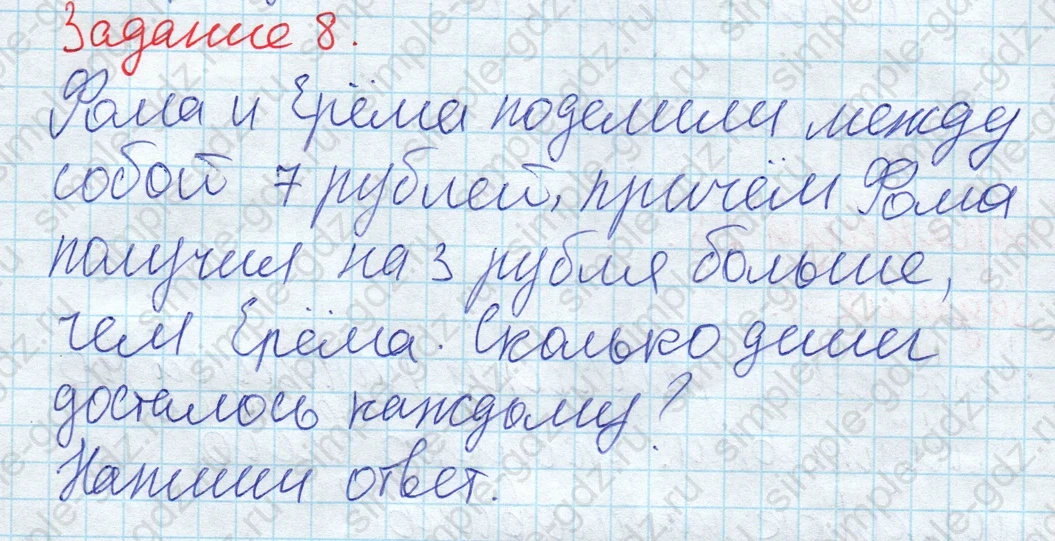 Задание 8.
Фома и Ерёма поделили между
собой 7 рублей, причём Фома
получил на 3 рубля больше,
чем Ерёма. Сколько денег
досталось каждому?
Напиши ответ.